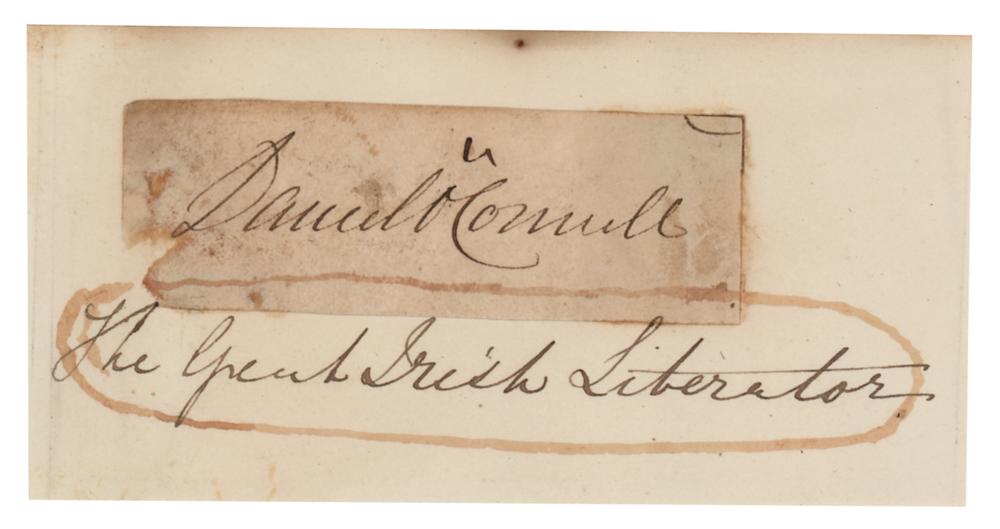 Daniel O'Connell
The Great Irish Liberator